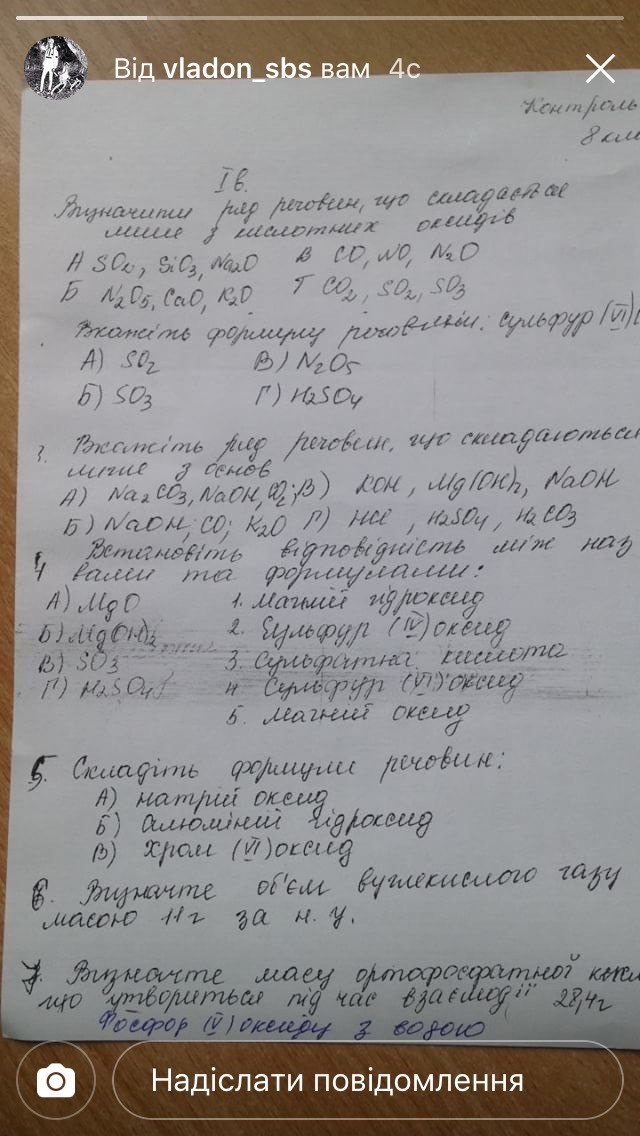 Від vladon_sbs вам 4с
Контроль
8 кл
І в.
Визначити ряд речовин, що складається
лише з кислотних оксидів
А SO2, SiO3, Na2O В CO, NO, N2O
Б N2O5, CaO, K2O Г CO2, SO2, SO3
Вкажіть формулу речовини: сульфур (VI)
А) SO2 В) N2O5
Б) SO3 Г) H2SO4
3. Вкажіть ряд речовин, що складаються
лише з основ
А) Na2CO3, NaOH, CO2; В) KOH, Mg(OH)2, NaOH
Б) NaOH; CO; K2O Г) HCl, H2SO4, H2CO3
4 Встановіть відповідність між наз
вами та формулами:
А) MgO 1. Магній гідроксид
Б) Mg(OH)2 2. Сульфур (IV) оксид
В) SO3 3. Сульфатна кислота
Г) H2SO4 4. Сульфур (VI) оксид
5. Магній оксид
5. Складіть формули речовин:
А) натрій оксид
Б) Алюміній гідроксид
В) Хром (VI) оксид
6. Визначте об'єм вуглекислого газу
масою 11 г за н. у.
7. Визначте масу ортофосфатної
що утвориться під час взаємодії 28,4 г
Фосфор (V) оксиду з водою
Надіслати повідомлення